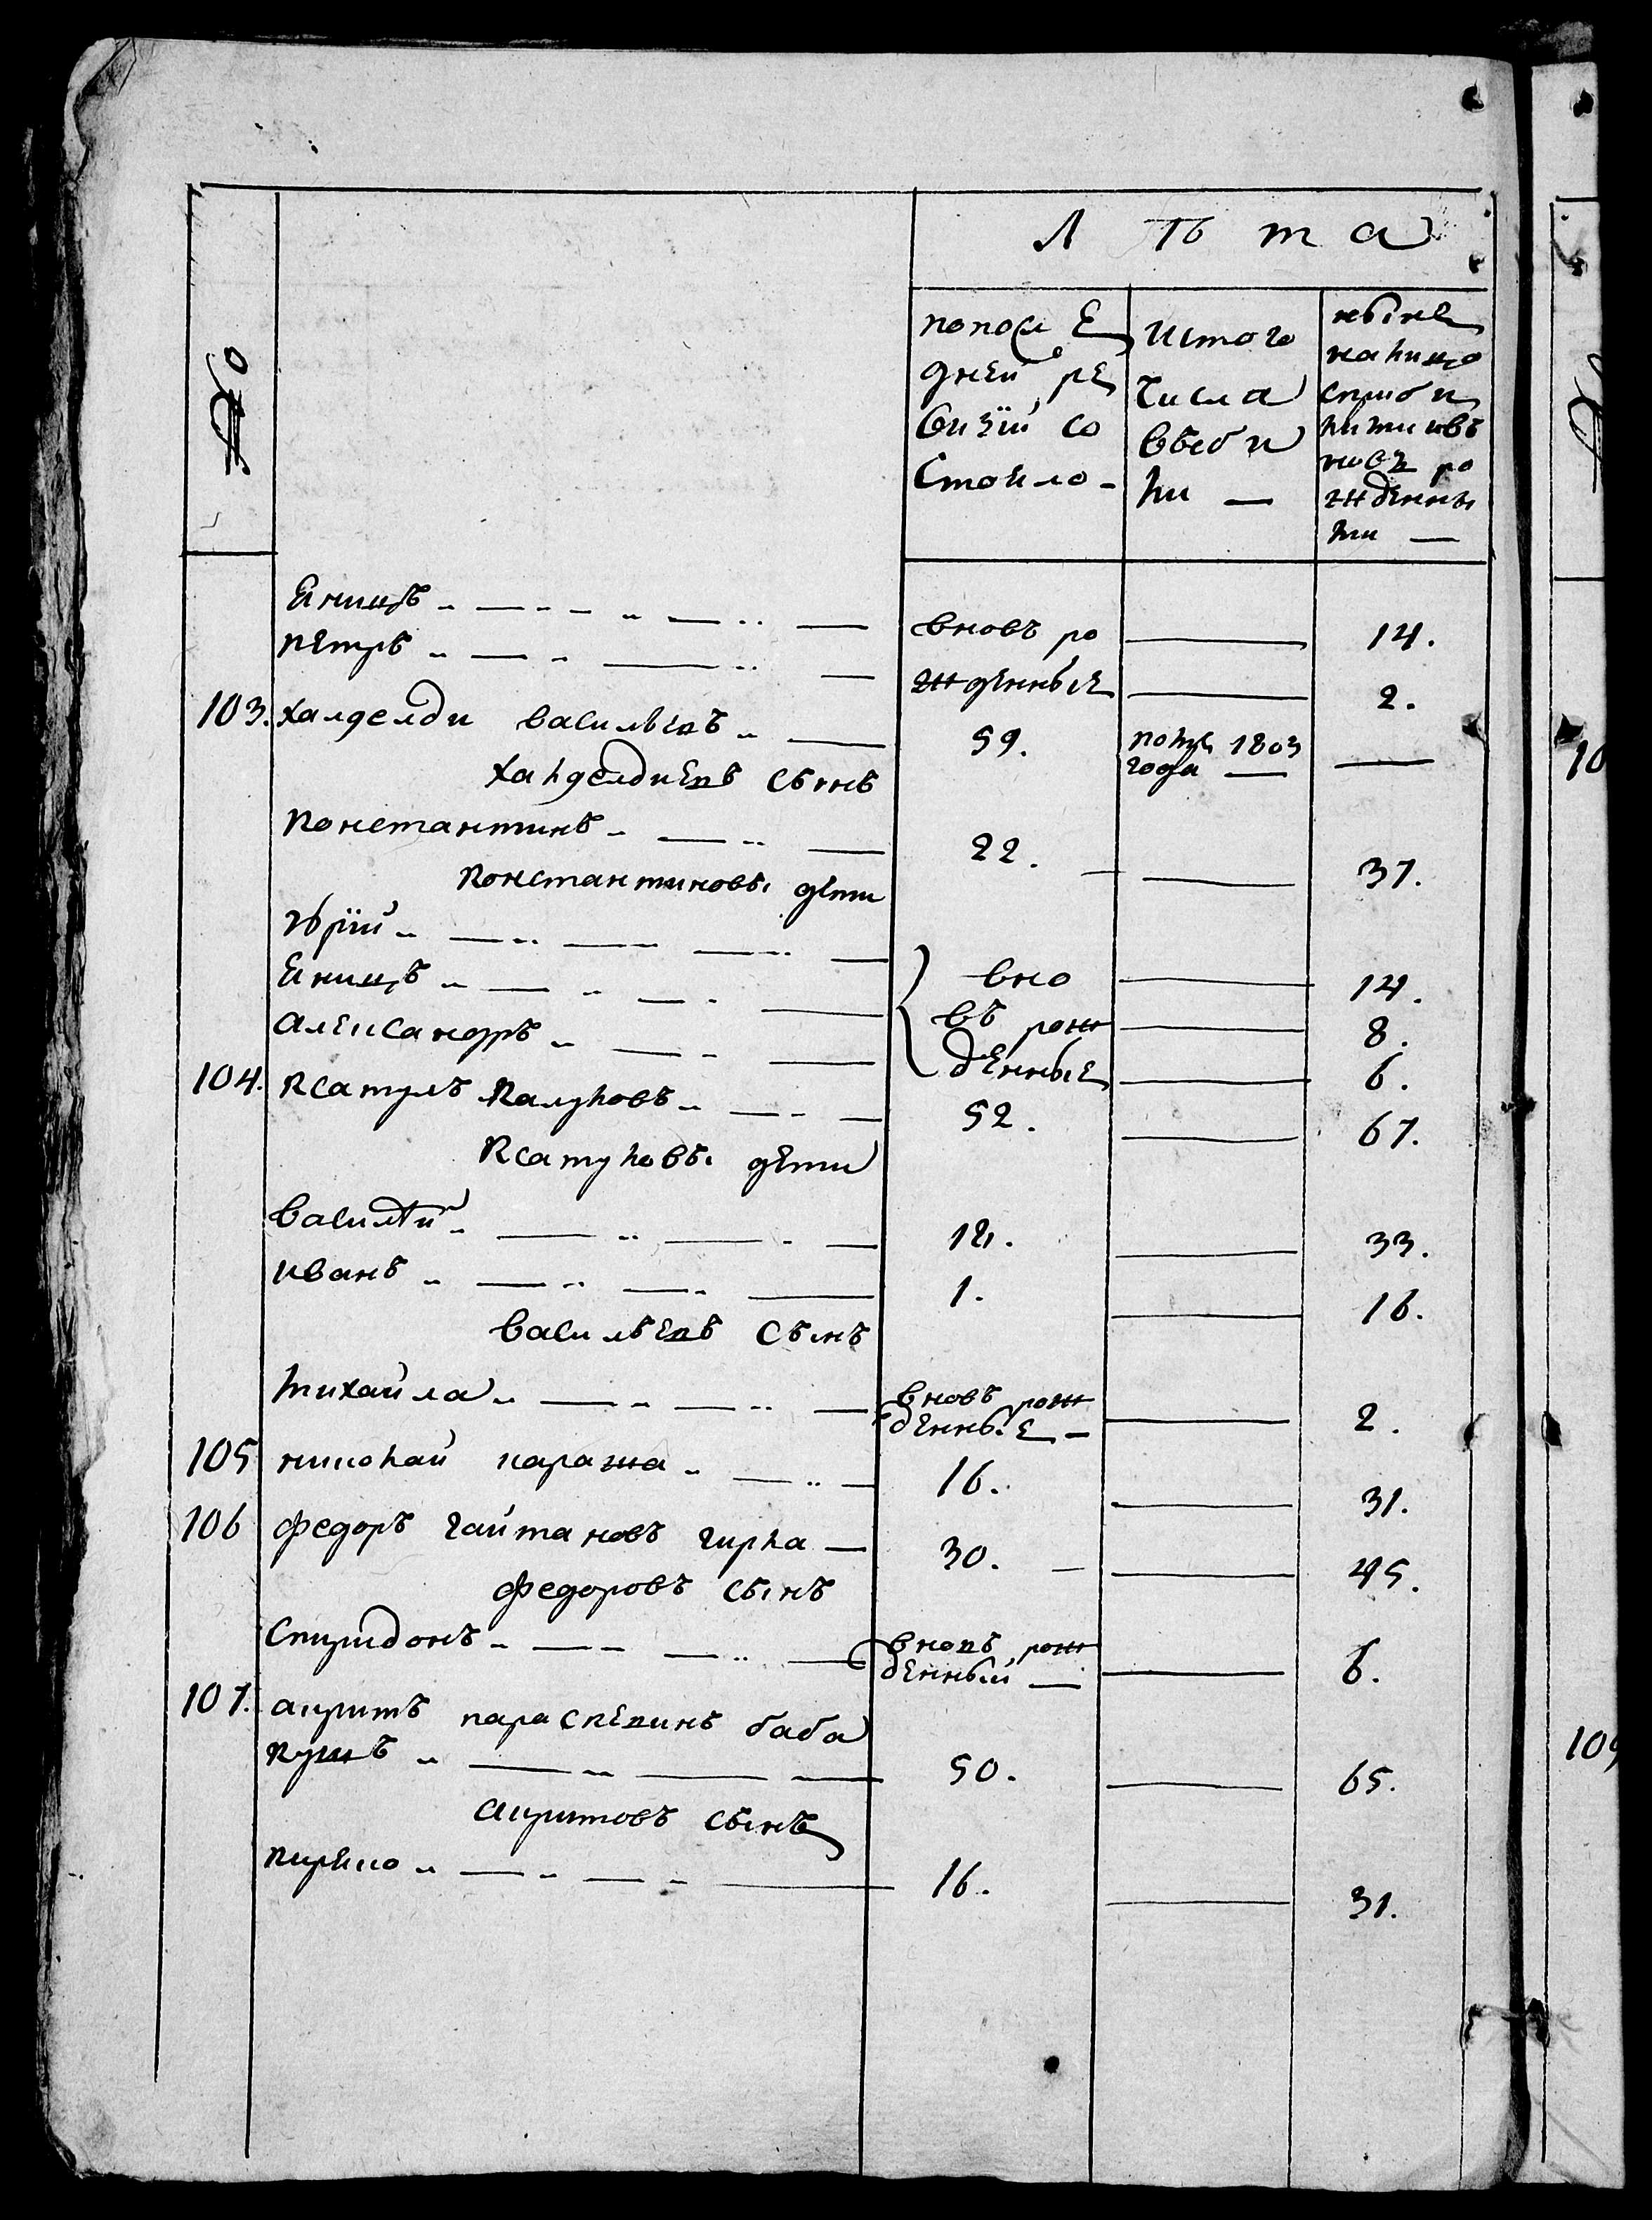 №
Лѣта
попосле
дней ре
визіи со
стояло -
Истого
числа
выбы
ли —
ныне
налицо
сприбы
лыми ивъ
новь ро
жденны
ми —
Якимъ 14.
Петръ 2.
вновь ро
жденные
103. Халделди Васильевъ 59. помре 1803
года —
Халделдиевъ сынъ
Константинъ 22. 37.
Константиновы дети
Юрій 14.
Якимъ 8.
Александръ 6.
вно
въ рож
денные
104. Ксатулъ Калуловъ 52. 67.
Ксатуловы дети
Василій 18. 33.
Иванъ 1. 16.
Васильевъ сынъ
Михайла вновь рож
денные - 2.
105 Николай Каража 16. 31.
106 Федоръ Гайтановъ 30. 45.
Федоровъ сынъ
Спиридонъ вновь рож
денный — 6.
107. Акритъ Параскевинъ баба
кушъ 50. 65.
Акритовъ сынъ
Кирьяко 16. 31.
10
109